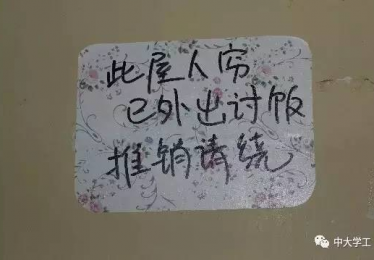 此屋人穷
已外出讨饭
推销请绕
中大学工